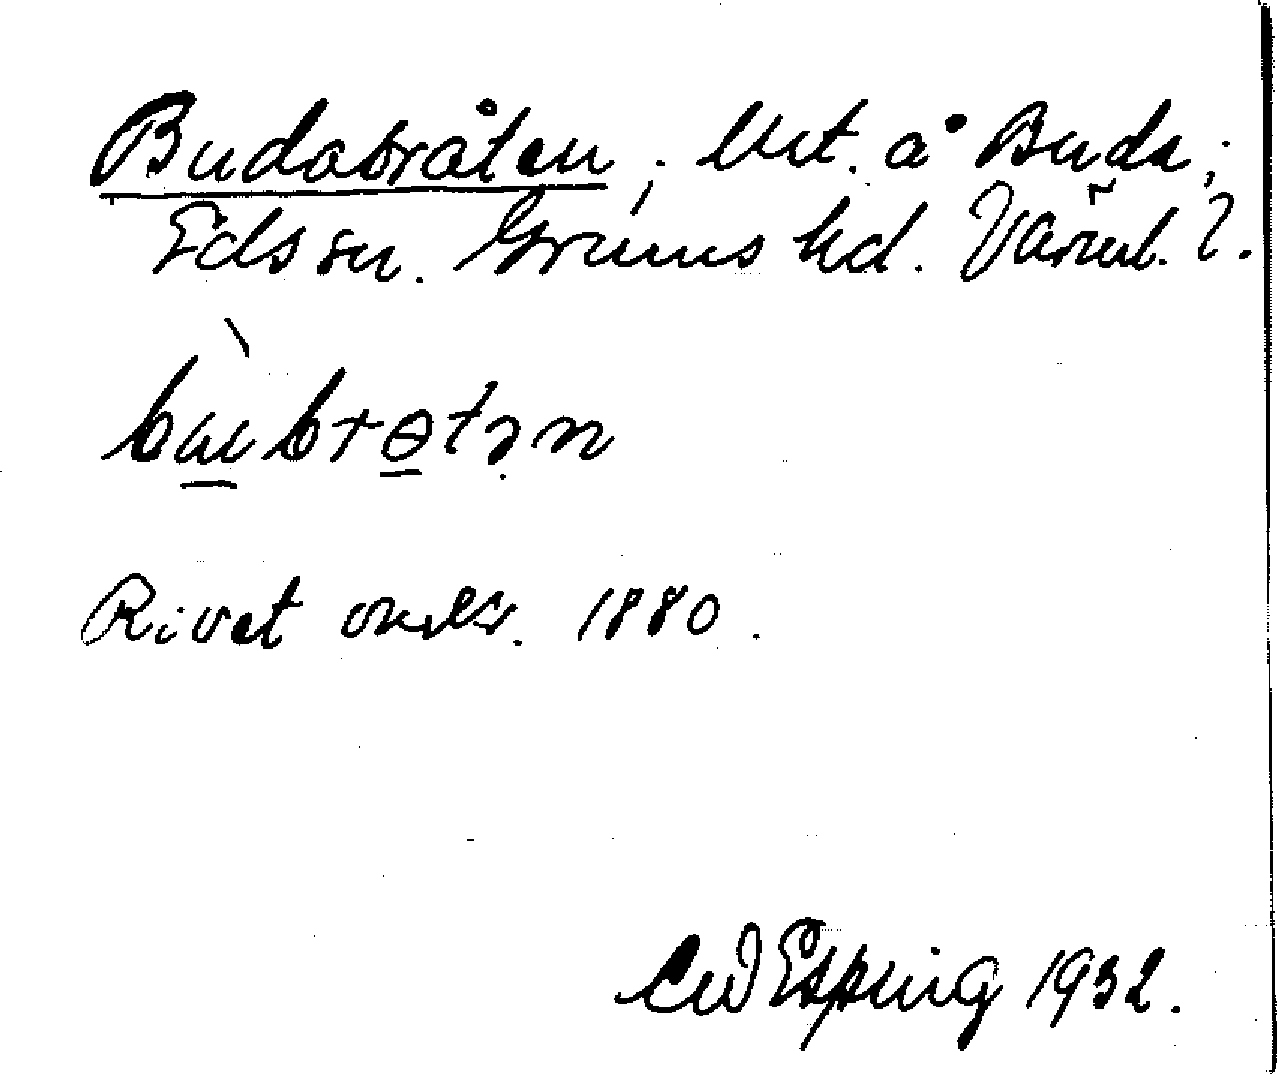 Budabråten; Utt. å Buda;
Eds sn. Grums hd. Värml. l.
bùbrɵtən
Rivet omkr. 1880.
CW Esping 1932.